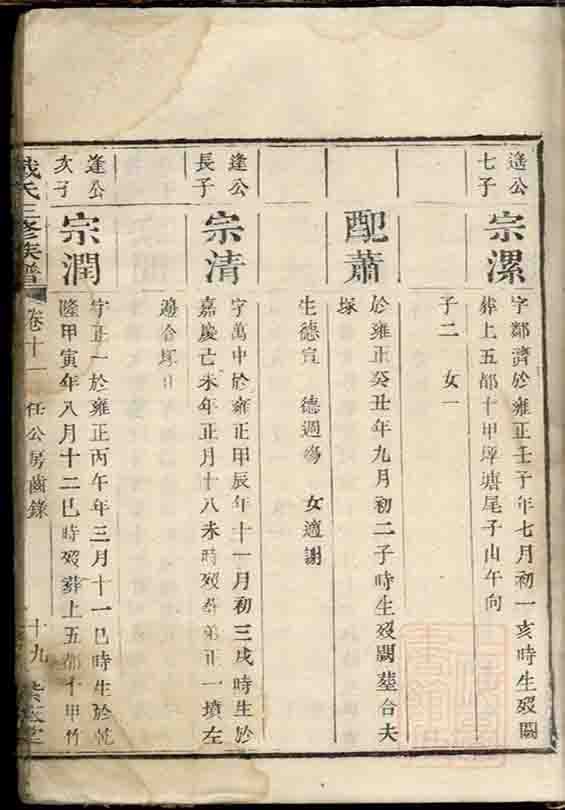 逢公
七子
宗漯
字鄰濟於雍正壬子年七月初一亥時生歿闕
葬上五都十甲坪塘尾子山午向
子二 女一
配蕭
於雍正癸丑年九月初二子時生歿闕葬合夫
塚
生德宣 德週殤 女適謝
逢公
長子
宗清
字萬中於雍正甲辰年十一月初三戌時生於
嘉慶己未年正月十八未時歿葬弟正一墳左
邊合塚
逢公
次子
宗潤
字正一於雍正丙午年三月十一巳時生於乾
隆甲寅年八月十二巳時歿葬上五都十甲竹
氏三修族譜
卷十一
任公房齒錄
十九